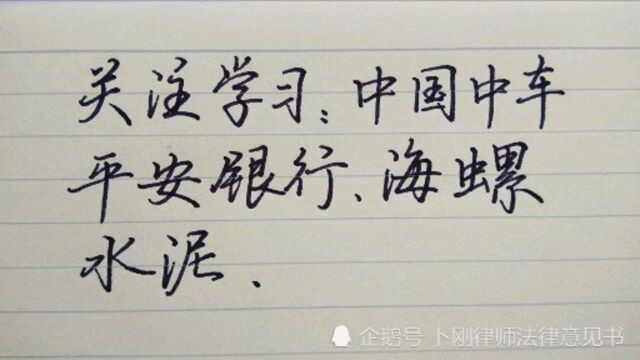 关注学习：中国中车
平安银行、海螺
水泥、
企鹅号 卜刚律师法律意见书